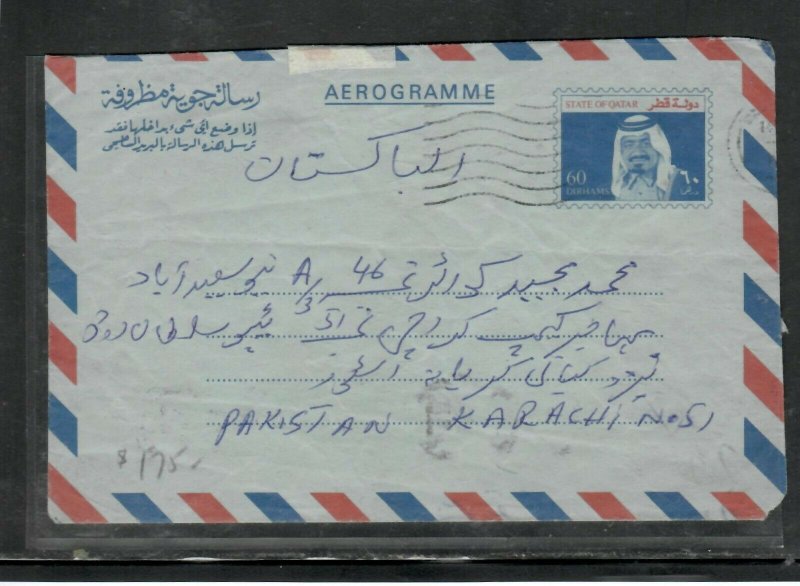 رسالة جوية مظروفة
إذا وضع أي شيء بداخلها فقد
ترسل هذه الرسالة بالبريد السطحي
AEROGRAMME
STATE OF QATAR دولة قطر
60 ٦٠
DIRHAMS درهم
الباكستان
محمد مجید کوارٹر نمبر 46 A/3 نیو سعید آباد
مہاجر کیمپ کراچی نمبر 51
نزد کریانہ اسٹور
PAKISTAN KARACHI NO51
$ 175-